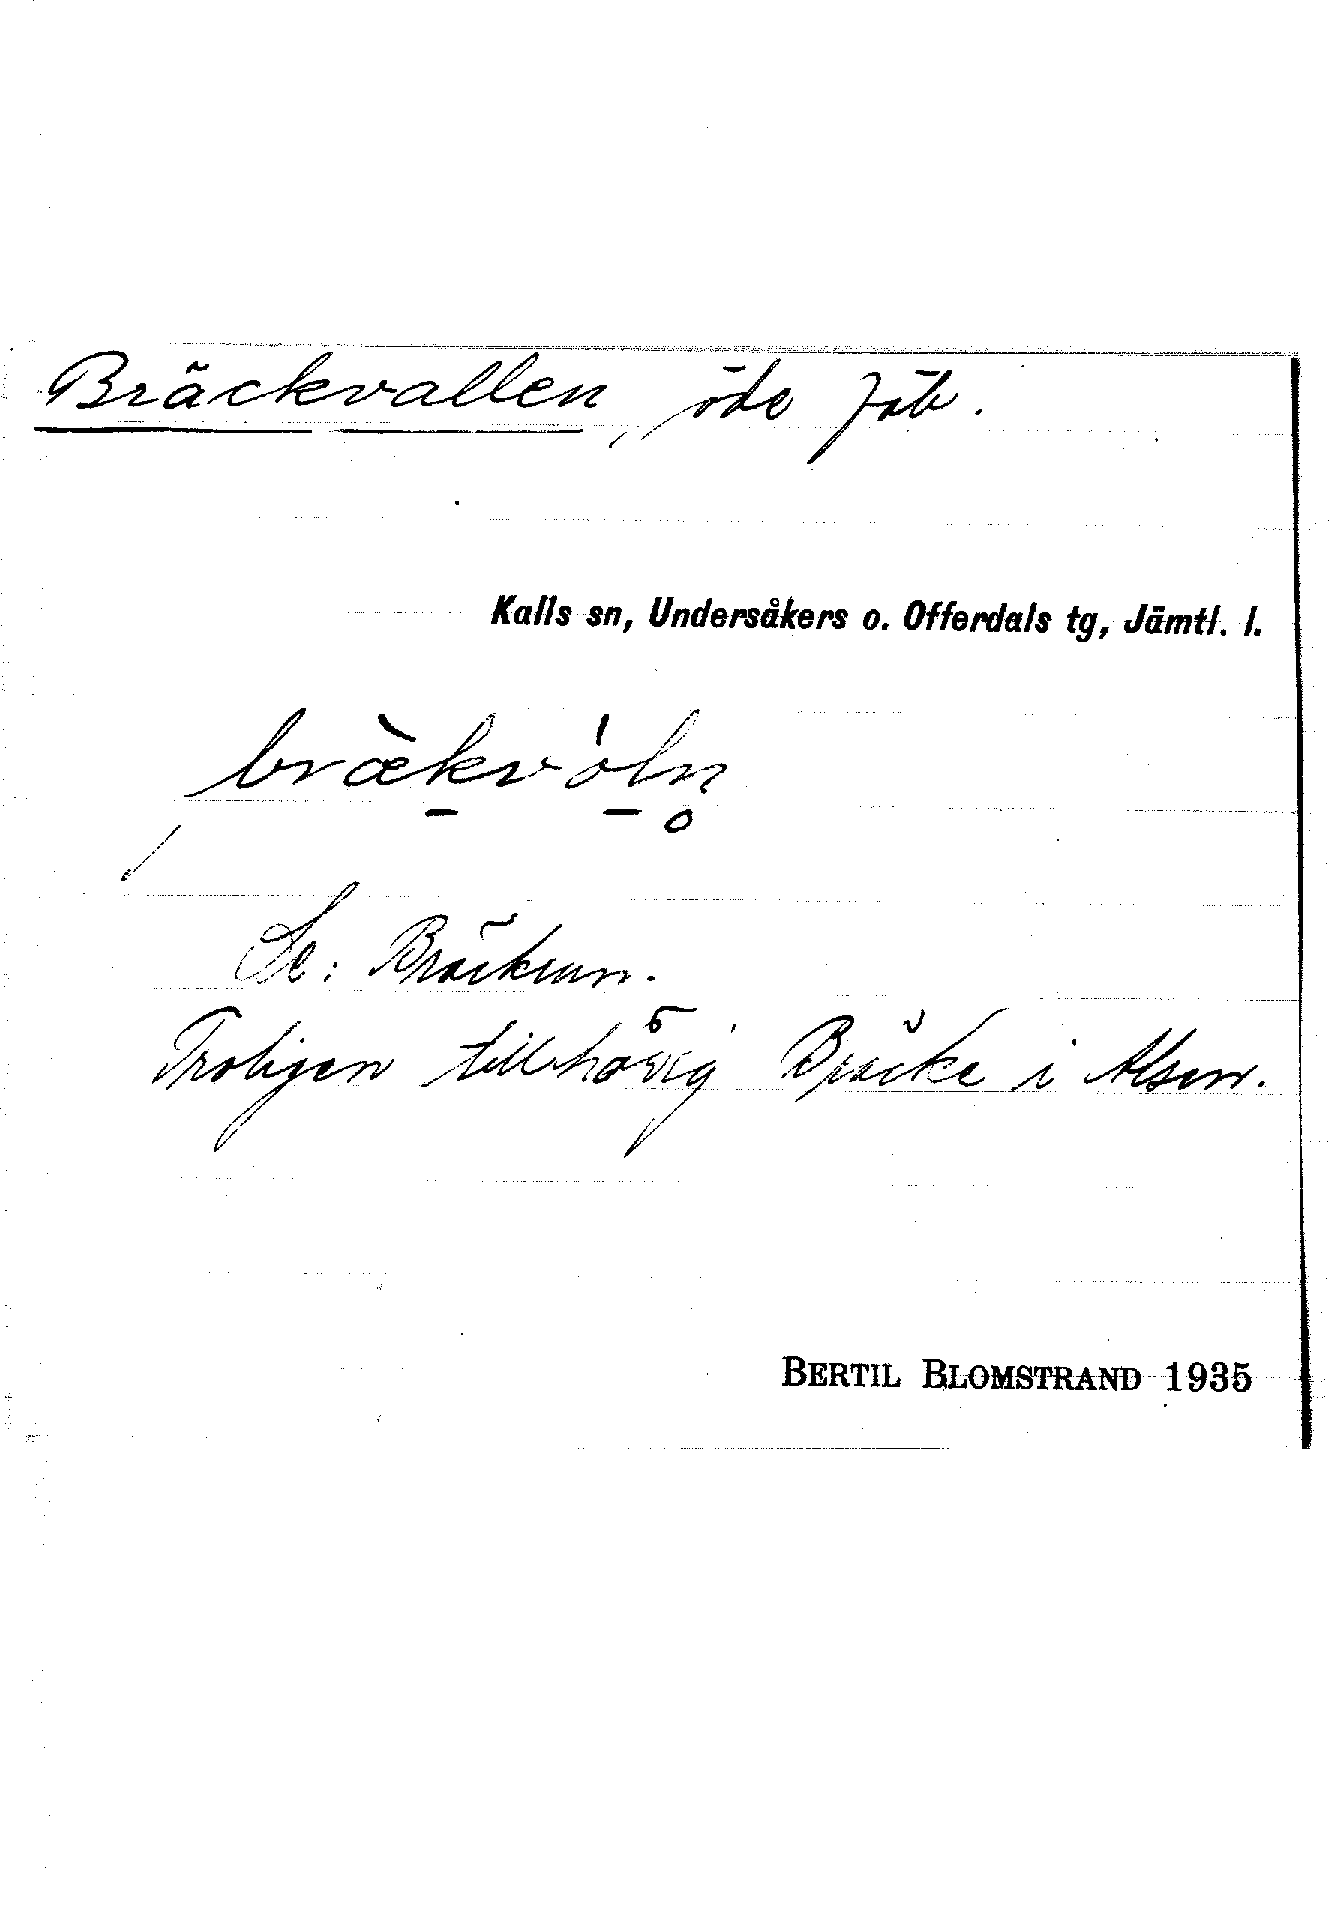 Bräckvallen, öde fäb.
Kalls sn, Undersåkers o. Offerdals tg, Jämtl. l.
bræ̀k̠vó̠ln̥
Se: Bräck
Troligen tillhörig Bräcke i Alsen.
BERTIL BLOMSTRAND 1935